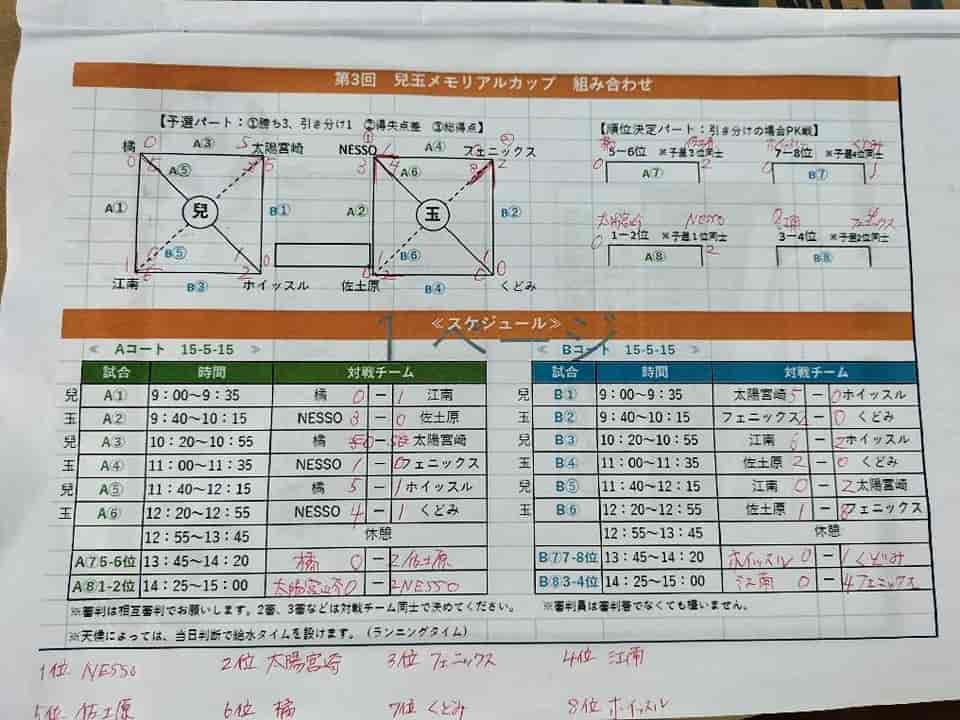 第3回 兒玉メモリアルカップ 組み合わせ
【予選パート：①勝ち3、引き分け1 ②得失点差 ③総得点】
【順位決定パート：引き分けの場合PK戦】
橘 0 A③ 5 太陽宮崎 NESSO 1 A④ フェニックス
橘 佐土原 ホイッスル くどみ
5－6位 ※予選3位同士 7－8位 ※予選4位同士
0 A⑦ 2 0 B⑦
A⑤ A⑥
A① 兒 B① A② 玉 B②
太陽宮崎 NESSO 江南 フェニックス
1－2位 ※予選1位同士 3－4位 ※予選2位同士
0 A⑧ 2 B⑧
B⑤ B⑥
江南 B③ ホイッスル 佐土原 B④ くどみ
≪スケジュール≫
1ページ
≪ Aコート 15-5-15 ≫ ≪ Bコート 15-5-15 ≫
試合 時間 対戦チーム 試合 時間 対戦チーム
兒 A① 9：00～9：35 橘 0 － 1 江南 兒 B① 9：00～9：35 太陽宮崎 5 － 0 ホイッスル
玉 A② 9：40～10：15 NESSO 3 － 0 佐土原 玉 B② 9：40～10：15 フェニックス － 0 くどみ
兒 A③ 10：20～10：55 橘 0 － 太陽宮崎 兒 B③ 10：20～10：55 江南 6 － 2 ホイッスル
玉 A④ 11：00～11：35 NESSO 1 － 0 フェニックス 玉 B④ 11：00～11：35 佐土原 2 － 0 くどみ
兒 A⑤ 11：40～12：15 橘 5 － 1 ホイッスル 兒 B⑤ 11：40～12：15 江南 0 － 2 太陽宮崎
玉 A⑥ 12：20～12：55 NESSO 4 － 1 くどみ 玉 B⑥ 12：20～12：55 佐土原 1 － 8 フェニックス
12：55～13：45 休憩 12：55～13：45 休憩
A⑦5-6位 13：45～14：20 橘 0 － 2 佐土原 B⑦7-8位 13：45～14：20 ホイッスル 0 － 1 くどみ
A⑧1-2位 14：25～15：00 太陽宮崎 0 － 2 NESSO B⑧3-4位 14：25～15：00 江南 0 － 4 フェニックス
※審判は相互審判でお願いします。2審、3審などは対戦チーム同士で決めてください。 ※審判員は審判着でなくても構いません。
※天候によっては、当日判断で給水タイムを設けます。（ランニングタイム）
1位 NESSO 2位 太陽宮崎 3位 フェニックス 4位 江南
5位 佐土原 6位 橘 7位 くどみ 8位 ホイッスル